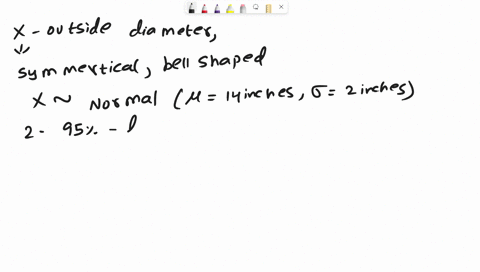 X - outside diameter,
symmertical, bell shaped
X ~ Normal (μ = 14 inches, σ = 2 inches)
2 - 95% - l